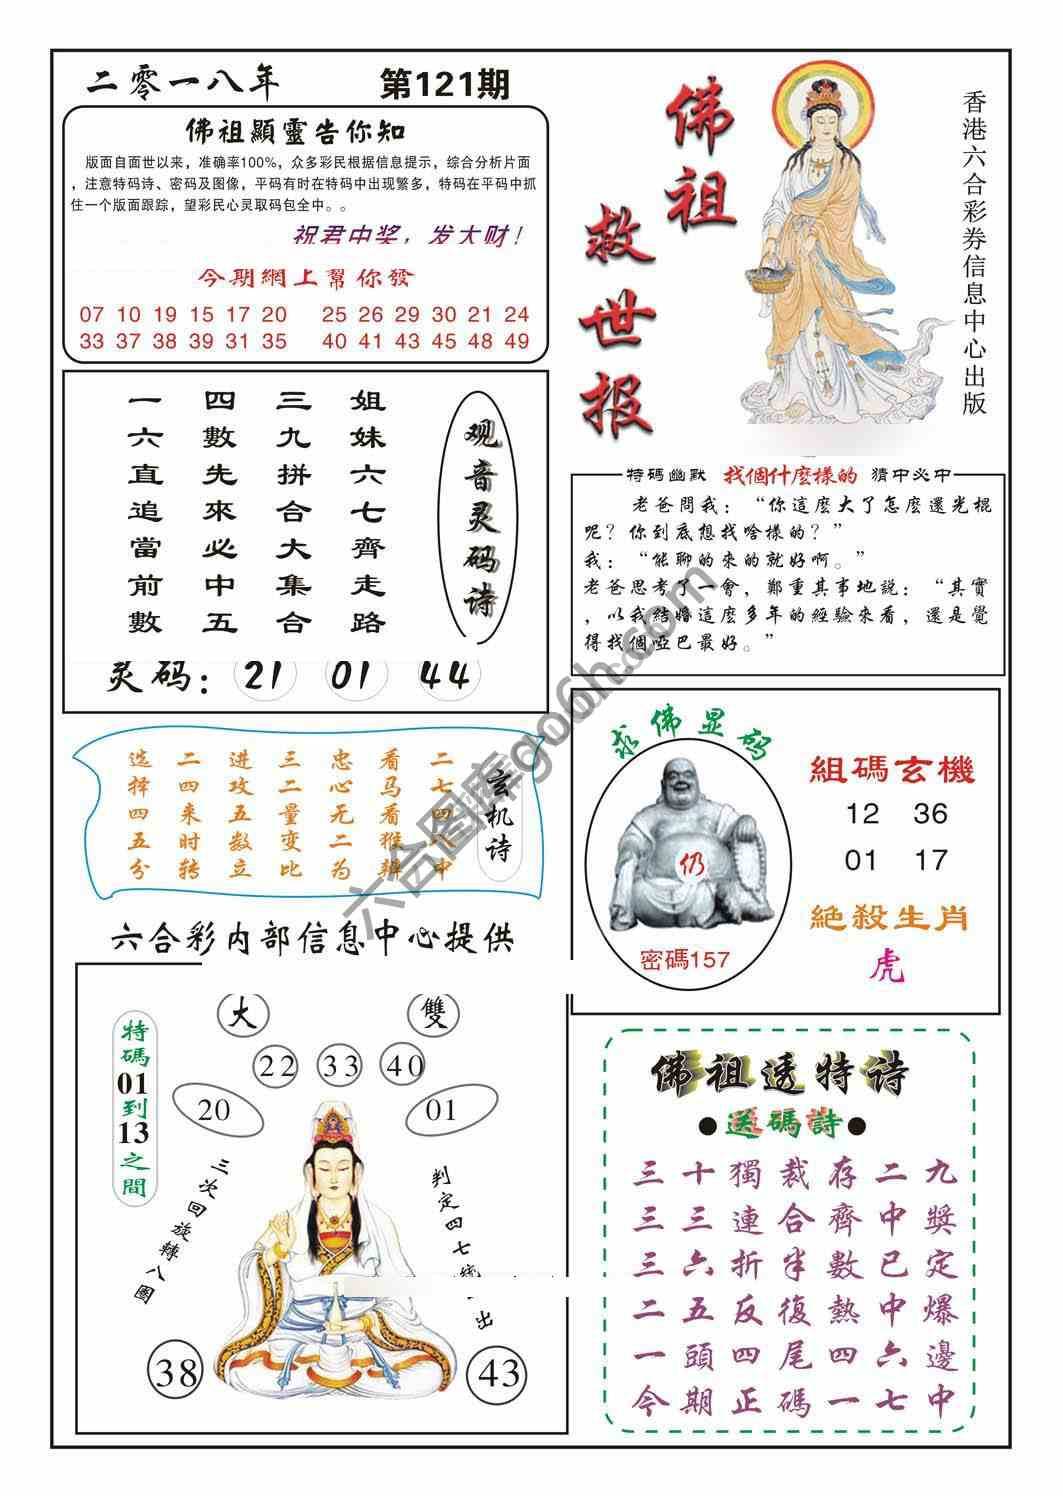 二零一八年 第121期
佛祖顯靈告你知
版面自面世以来，准确率100%，众多彩民根据信息提示，综合分析片面
，注意特码诗、密码及图像，平码有时在特码中出现繁多，特码在平码中抓
住一个版面跟踪，望彩民心灵取码包全中。。
祝君中奖，发大财！
今期網上幫你發
07 10 19 15 17 20 25 26 29 30 21 24
33 37 38 39 31 35 40 41 43 45 48 49
佛祖救世报
香港六合彩券信息中心出版
观音灵码诗
姐妹六七齊走路
三九拼合大集合
四數先來必中五
一六直追當前數
灵码：21 01 44
特碼幽默 找個什麼樣的 猜中必中
老爸問我：“你這麼大了怎麼還光棍
呢？你到底想找啥樣的？”
我：“能聊的來的就好啊。”
老爸思考了一會，鄭重其事地説：“其實
，以我結婚這麼多年的經驗來看，還是覺
得找個啞巴最好。”
玄机诗
二七四八中
看马看猴辨
忠心无二为
三二量变比
进攻五数立
二四来时转
选择四五分
求佛显码
仍
密碼157
組碼玄機
12 36
01 17
絕殺生肖
虎
六合彩内部信息中心提供
大 雙
22 33 40
20 01
特碼01到13之間
三次回旋轉八圈
判定四七統 出
38 43
佛祖透特诗
●送碼詩●
三十獨裁存二九
三三連合齊中獎
三六折半數已定
二五反復熱中爆
一頭四尾四六邊
今期正碼一七中
六合图库go6h.com